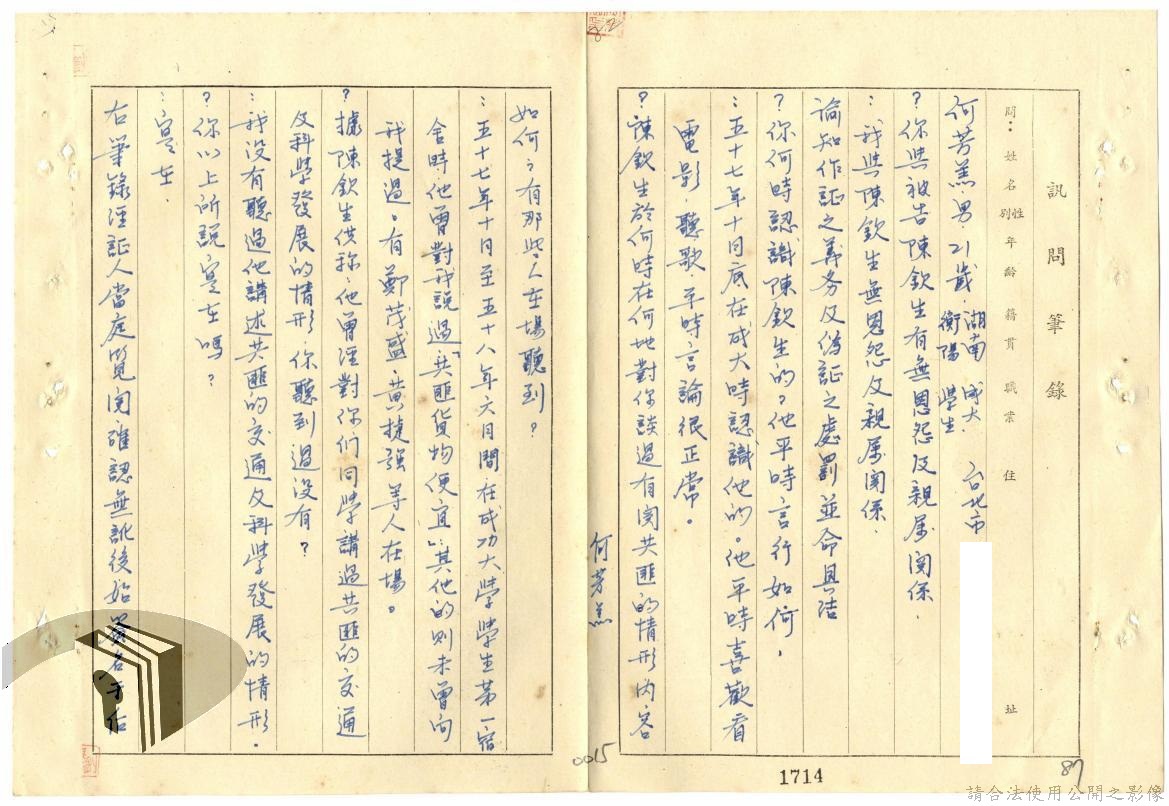 訊問筆錄
問：姓名性別年齡籍貫職業住址
何芳羔 男 21歲 湖南衡陽 成大學生 台北市
？你與被告陳欽生有無恩怨及親屬関係．
：我與陳欽生無恩怨及親屬関係．
諭知作証之義务及偽証之處罰並命具结
？你何時認識陳欽生的？他平時言行如何．
：五十七年十月底在成大時認識他的。他平時喜歡看
電影，聽歌，平時言論很正常。
？陳欽生於何時在何地對你談過有関共匪的情形内容
何芳羔
如何？有那些人在場聽到？
：五十七年十月至五十八年六月間在成功大學學生第一宿
舍時，他曾對我說過「共匪貨物便宜」：其他的則未曾向
我提過。有鄭茂盛，黄捷強等人在場。
？據陳欽生供称，他曾經對你们同學講過共匪的交通
及科學發展的情形，你聽到過没有？
：我没有聽過他講述共匪的交通及科學發展的情形．
？你以上所說實在嗎？
：實在．
右筆錄經証人當庭览閲確認無訛後始簽名于后
0015
1714
87
請合法使用公開之影像